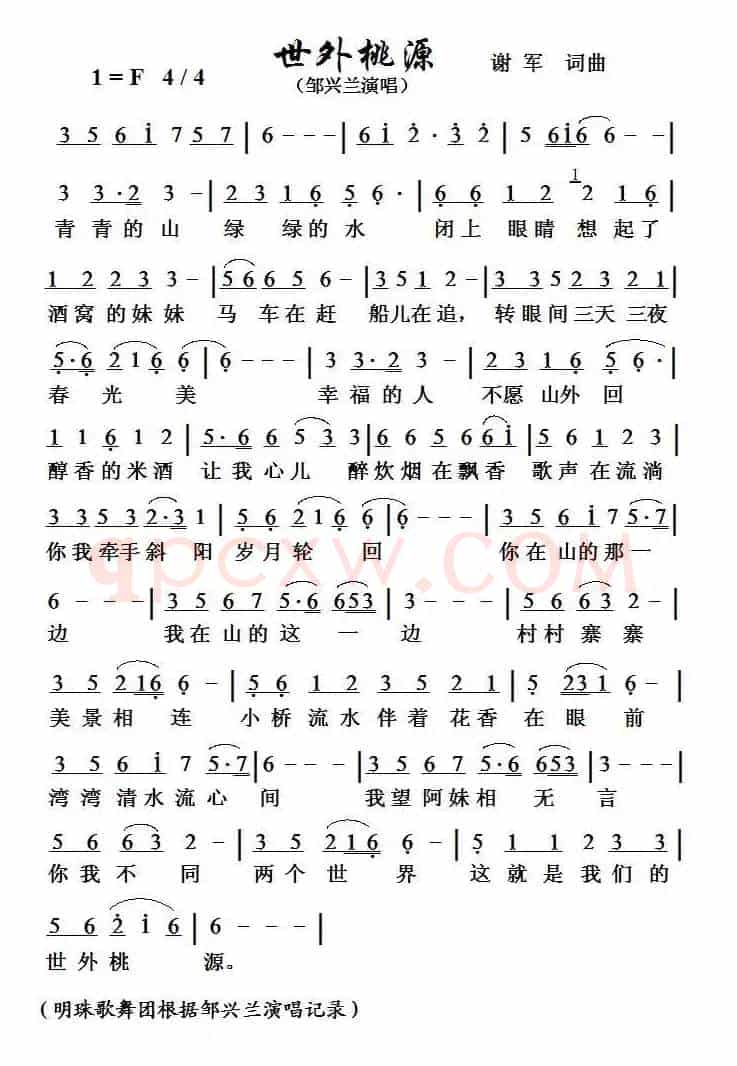 世外桃源
1=F 4/4 谢军 词曲
(邹兴兰演唱)
3 5 6 i 7 5 7 | 6 - - - | 6 i 2 · 3 2 | 5 6i6 6 - |
3 3·2 3 - | 2 3 1 6 5 6 · | 6 6 1 2 2 1 6 |
青青的山 绿 绿的水 闭上 眼睛 想起了
1 2 2 3 3 - | 5 6 6 5 6 | 3 5 1 2 - | 3 3 5 2 3 2 1 |
酒窝的妹妹 马 车在赶 船儿在追，转眼间三天 三夜
5·6 2 1 6 6 | 6 - - - | 3 3·2 2 - | 2 3 1 6 5 6 · |
春 光 美 幸福的人 不愿 山外 回
1 1 6 1 2 | 5·6 6 5 3 3 | 6 6 6 5 6 6 i | 5 5 6 5 3 |
醇香的米酒 让我心儿 醉炊烟在飘香 歌声在流淌
3 3 5 3 2·3 1 | 5 6 2 1 6 | 6 - - - | 3 5 6 i 7 5·7 |
你我牵手斜 阳 岁月轮 回 你在山的那一
6 - - - | 3 5 6 7 5·6 653 | 3 - - - | 5 6 6 3 2 - |
边 我在山的这 一 边 村村 寨寨
3 5 216 6 - | 5 1 2 3 5 2 1 | 5 231 6 - |
美景相 连 小桥 流水 伴着 花香 在 眼 前
3 5 6 i 7 5·7 | 6 - - - | 3 5 6 7 5·6 653 | 3 - - - |
湾湾 清水流心 间 我望 阿妹相 无 言
5 6 6 3 2 - | 3 5 216 6 - | 5 1 1 2 3 2 |
你我 不 同 两个 世 界 这就是我们的
5 6 2 i 6 | 6 - - - |
世外桃 源。
(明珠歌舞团根据邹兴兰演唱记录)
qpcxw.COM